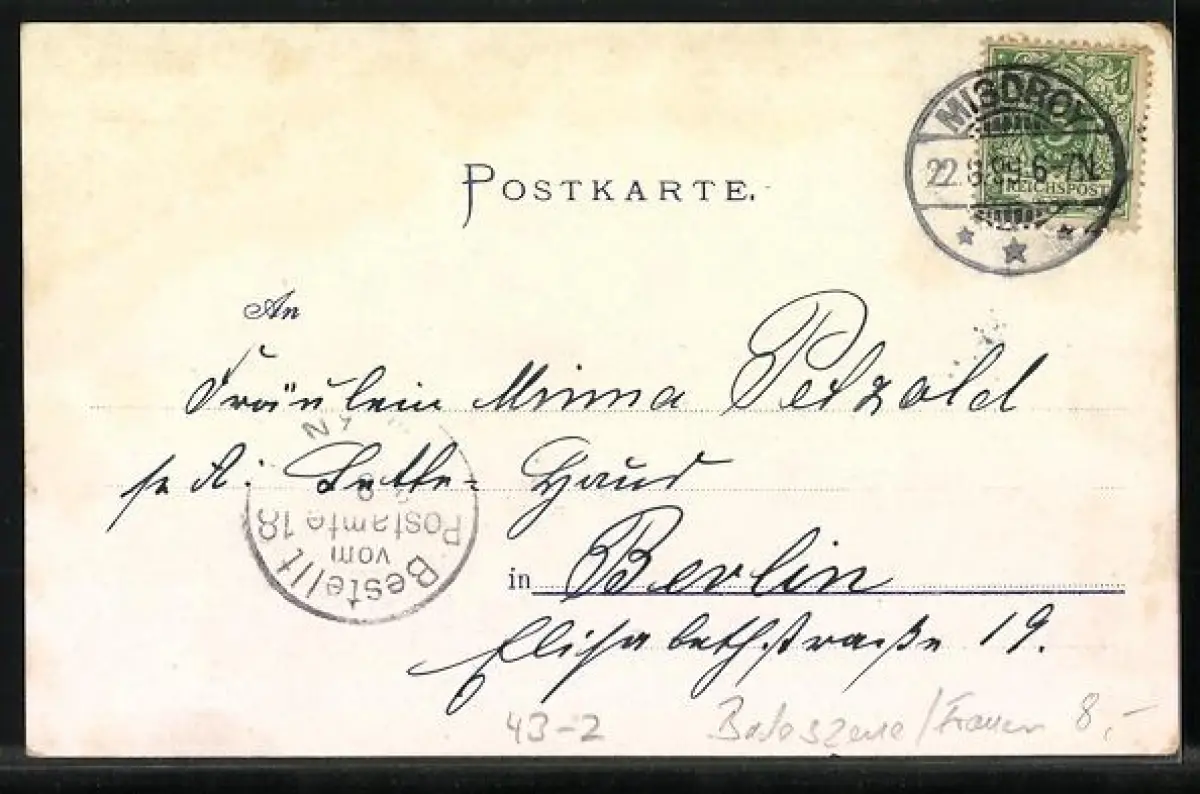 MISDROY
22.8.99.6-7N.
REICHSPOST
POSTKARTE.
An
Fräulein Minna Petzold
Lette-Haus
in Berlin
Elisabethstraße 19.
Bestellt
vom
Postamte 18
43-2 Badeszene/Frauen 8,-